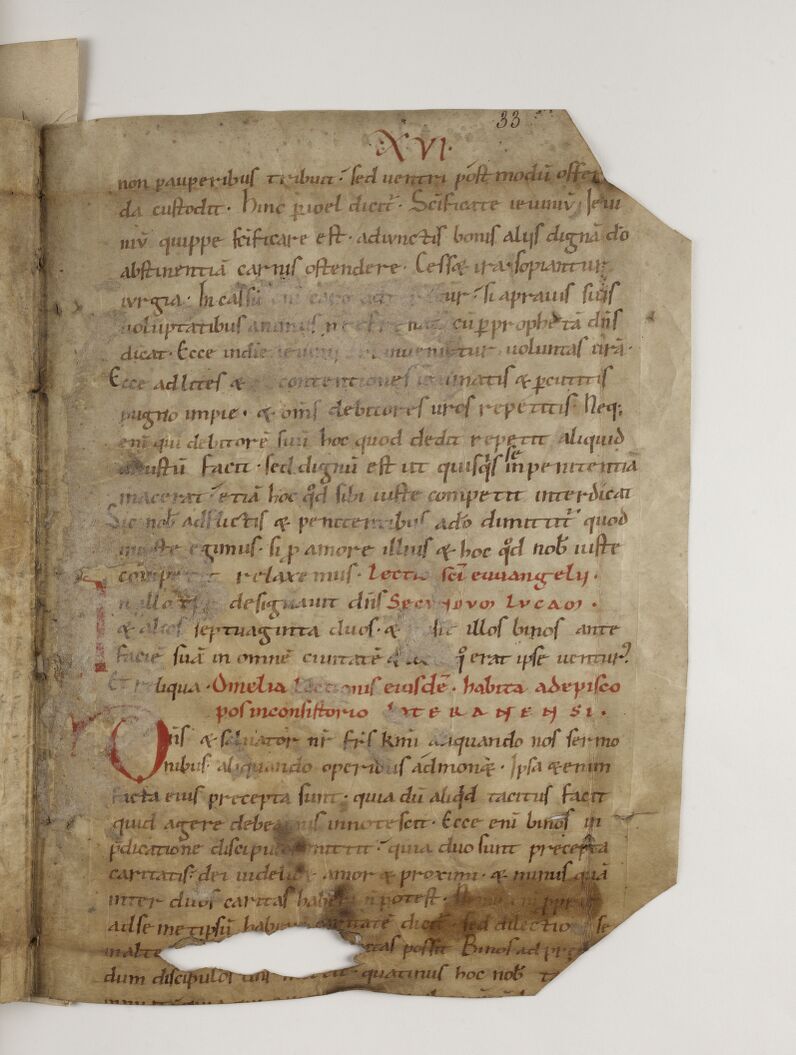 33
XVI.
non pauperibus tribuit · sed uentri post modū offeren
da custodit · Hinc p ioel dicit · Scificate ieiuniū · Ieiu
niū quippe scificare est · adiunctis bonis alijs dignā dō
abstinentiā carnis ostendere · Cesset ira · sopiantur
iurgia · In cassū · si a prauis suis
uoluptatibus animus cū p prophetā dns
dicat · Ecce in die inuenitur uoluntas ur̄a ·
Ecce ad lites & contentiones ieiunatis & pcutitis
pugno impie · & om̄s debitores uros repetitis · Neq;
eni qui debitorē suū hoc quod dedit repetit aliquid
iniustū facit · sed dignū est ut quisqs se in penitentia
macerat etiā hoc qd sibi iuste competit interdicat
Sic nob adflictis & penitentibus a dō dimittit quod
iniuste egimus · si p amore illius & hoc qd nob iuste
competit relaxemus · Lectio sci euuangelij ·
In illo designauit dns Secundum Lucam ·
& alios septuaginta duos · & illos binos ante
faciē suā in omnē ciuitatē & q erat ipse uentur
Et reliqua · Omelia lectionis eiusdē · habita ad episco
pos in consistorio Lateranensi ·
Dns & saluator nr frs kmi aliquando nos sermo
nibus · aliquando operibus admonet · Ipsa etenim
facta eius precepta sunt · quia dū aliqd tacitus facit
quid agere debeamus innotescit · Ecce eni binos in
pdicatione discipulos mittit · quia duo sunt precepta
caritatis · dei uidelicet amor & proximi · & minus quā
inter duos caritas haberi n potest · Nemo eni
ad se me tipsū habere caritatē dicit · sed dilectio se
in alte possit Binos ad pre
dum discipulos quatinus hoc nob